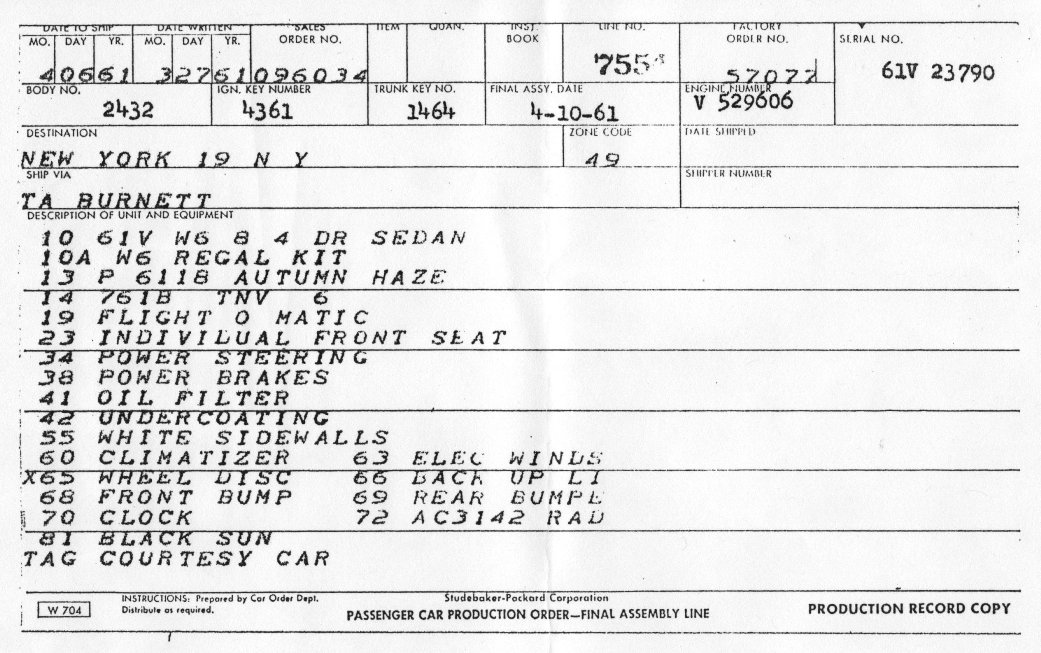 DATE TO SHIP DATE WRITTEN SALES ORDER NO. ITEM QUAN. INST. BOOK LINE NO. FACTORY ORDER NO. SERIAL NO.
MO. DAY YR. MO. DAY YR.
40661 32761 096034 57077 61V 23790
BODY NO. IGN. KEY NUMBER TRUNK KEY NO. FINAL ASSY. DATE ENGINE NUMBER
2432 4361 1464 4-10-61 V 529606
DESTINATION ZONE CODE DATE SHIPPED
NEW YORK 19 N Y 49
SHIP VIA SHIPPER NUMBER
TA BURNETT
DESCRIPTION OF UNIT AND EQUIPMENT
10 61V W6 8 4 DR SEDAN
10A W6 REGAL KIT
13 P 6118 AUTUMN HAZE
14 761B TNV 6
19 FLIGHT O MATIC
23 INDIVILUAL FRONT SEAT
34 POWER STEERING
38 POWER BRAKES
41 OIL FILTER
42 UNDERCOATING
55 WHITE SIDEWALLS
60 CLIMATIZER 63 ELEC WINDS
X65 WHEEL DISC 66 BACK UP LI
68 FRONT BUMP 69 REAR BUMPE
70 CLOCK 72 AC3142 RAD
81 BLACK SUN
TAG COURTESY CAR
W 704 INSTRUCTIONS: Prepared by Car Order Dept. Studebaker-Packard Corporation
Distribute as required. PASSENGER CAR PRODUCTION ORDER—FINAL ASSEMBLY LINE PRODUCTION RECORD COPY